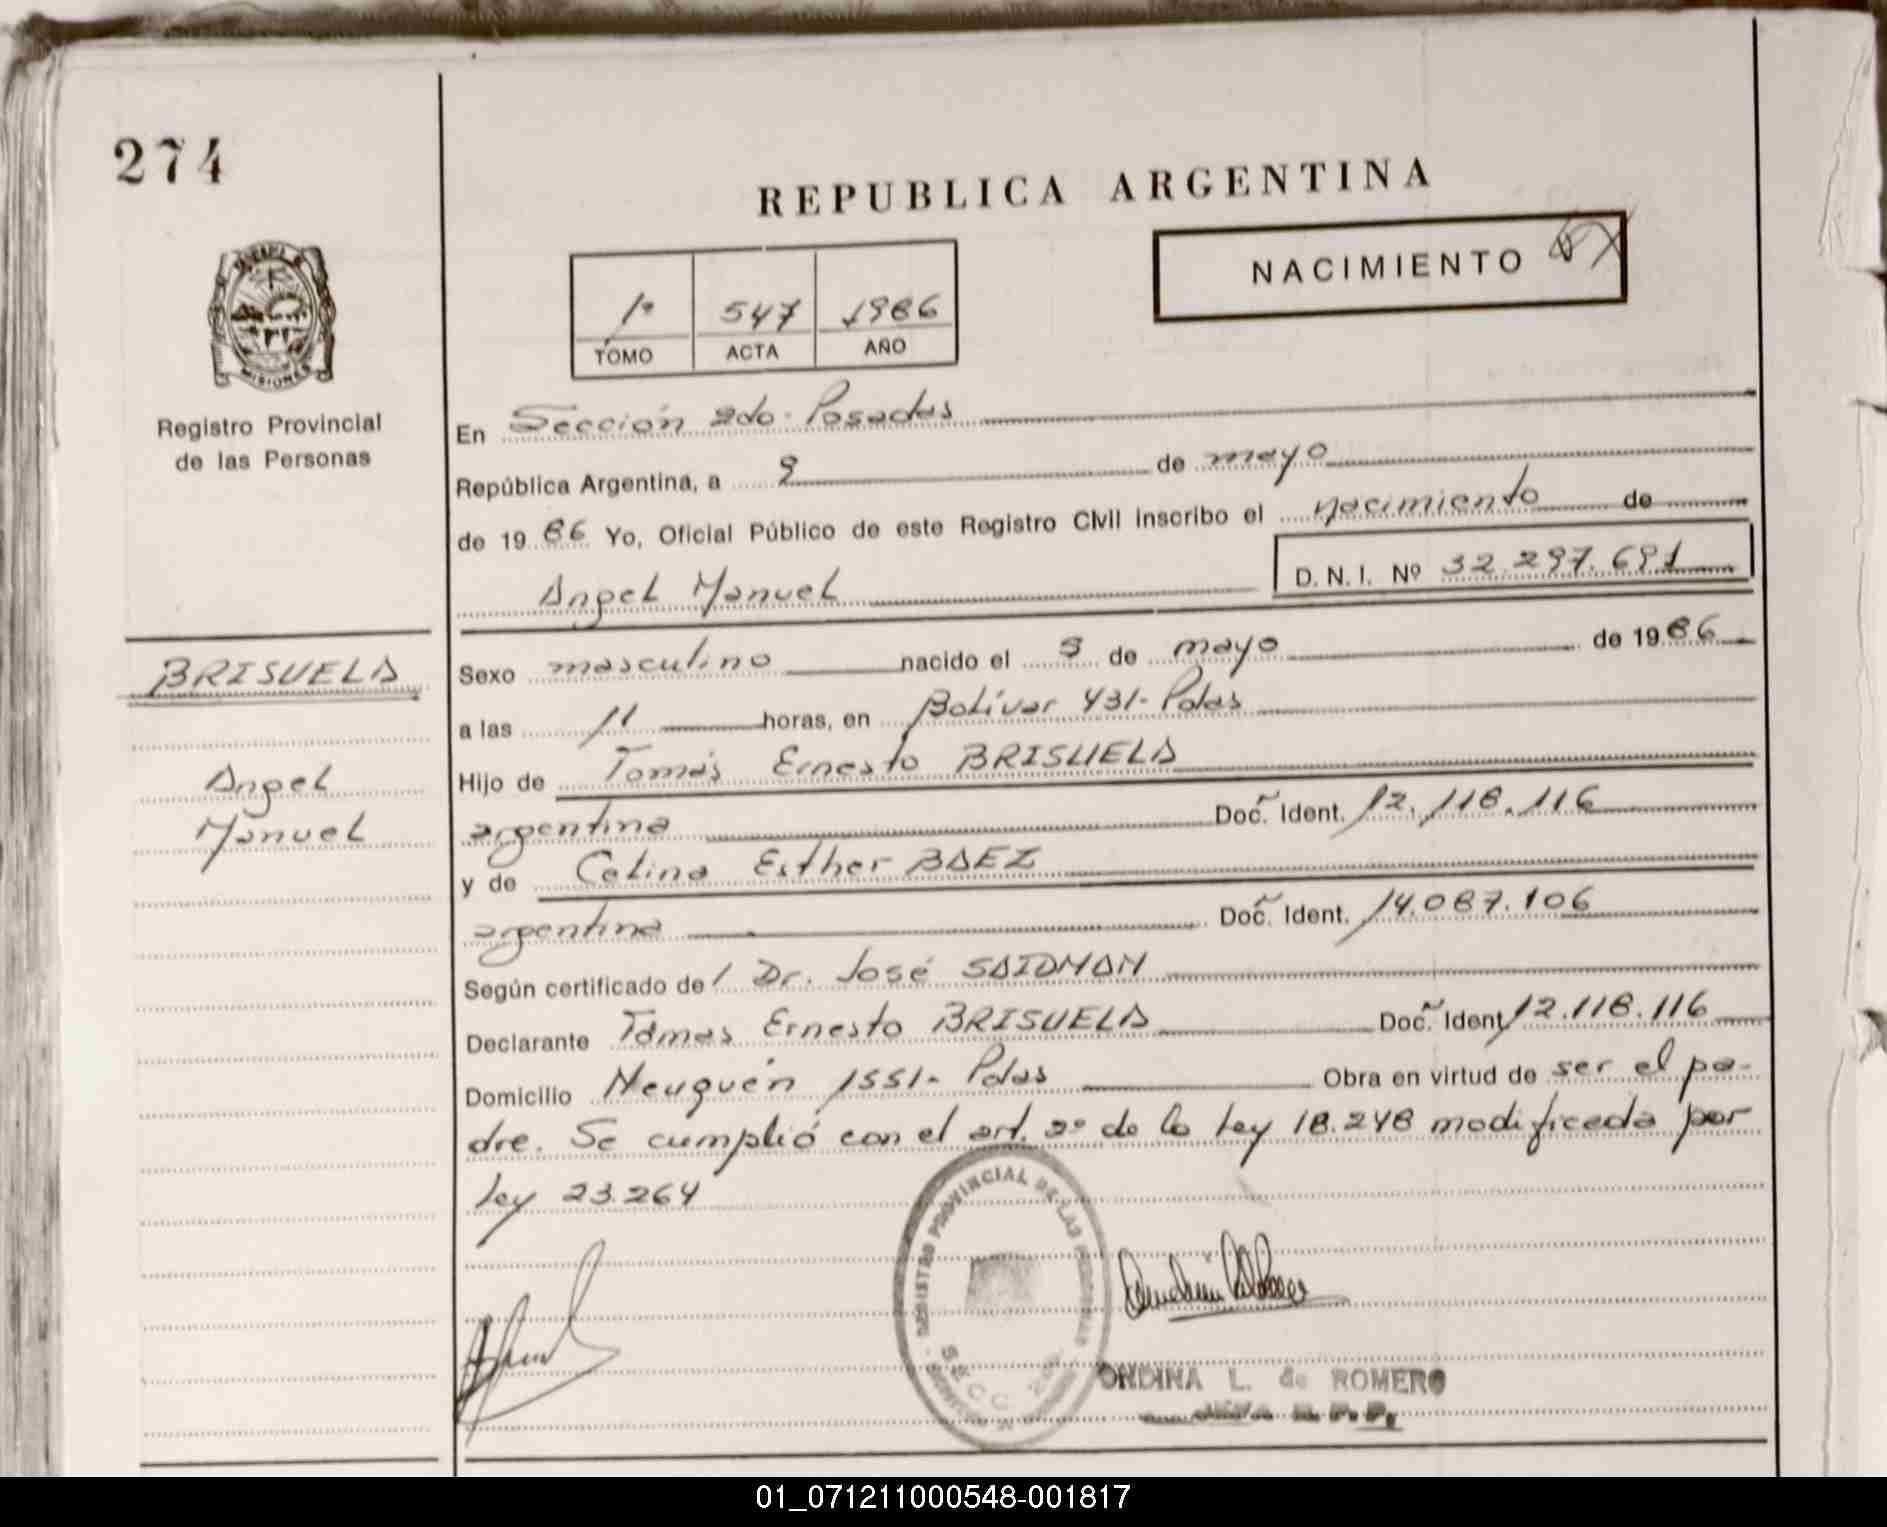 274
REPUBLICA ARGENTINA
NACIMIENTO
1º 547 1986
TOMO ACTA AÑO
MISIONES
Registro Provincial
de las Personas
En Sección 2da. Posadas
República Argentina, a 9 de mayo
de 1986 Yo, Oficial Público de este Registro Civil inscribo el nacimiento de
D. N. I. Nº 32.297.691
Angel Manuel
BRISUELA
Angel
Manuel
Sexo masculino nacido el 3 de mayo de 1986
a las 11 horas, en Bolívar 431- Pdas
Hijo de Tomás Ernesto BRISUELA
argentina Doc. Ident. 12.118.116
y de Celina Esther BAEZ
argentina Doc. Ident. 14.087.106
Según certificado del Dr. José SAIDMAN
Declarante Tomas Ernesto BRISUELA Doc. Ident. 12.118.116
Domicilio Neuquén 1551- Pdas Obra en virtud de ser el pa-
dre. Se cumplió con el art. 2º de la Ley 18.248 modificada por
Ley 23.264
REGISTRO PROVINCIAL DE LAS PERSONAS
SECC. 2da
ONDINA L. de ROMERO
01_071211000548-001817